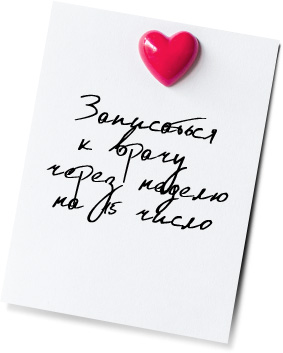 Записаться
к врачу
через неделю
на 15 число